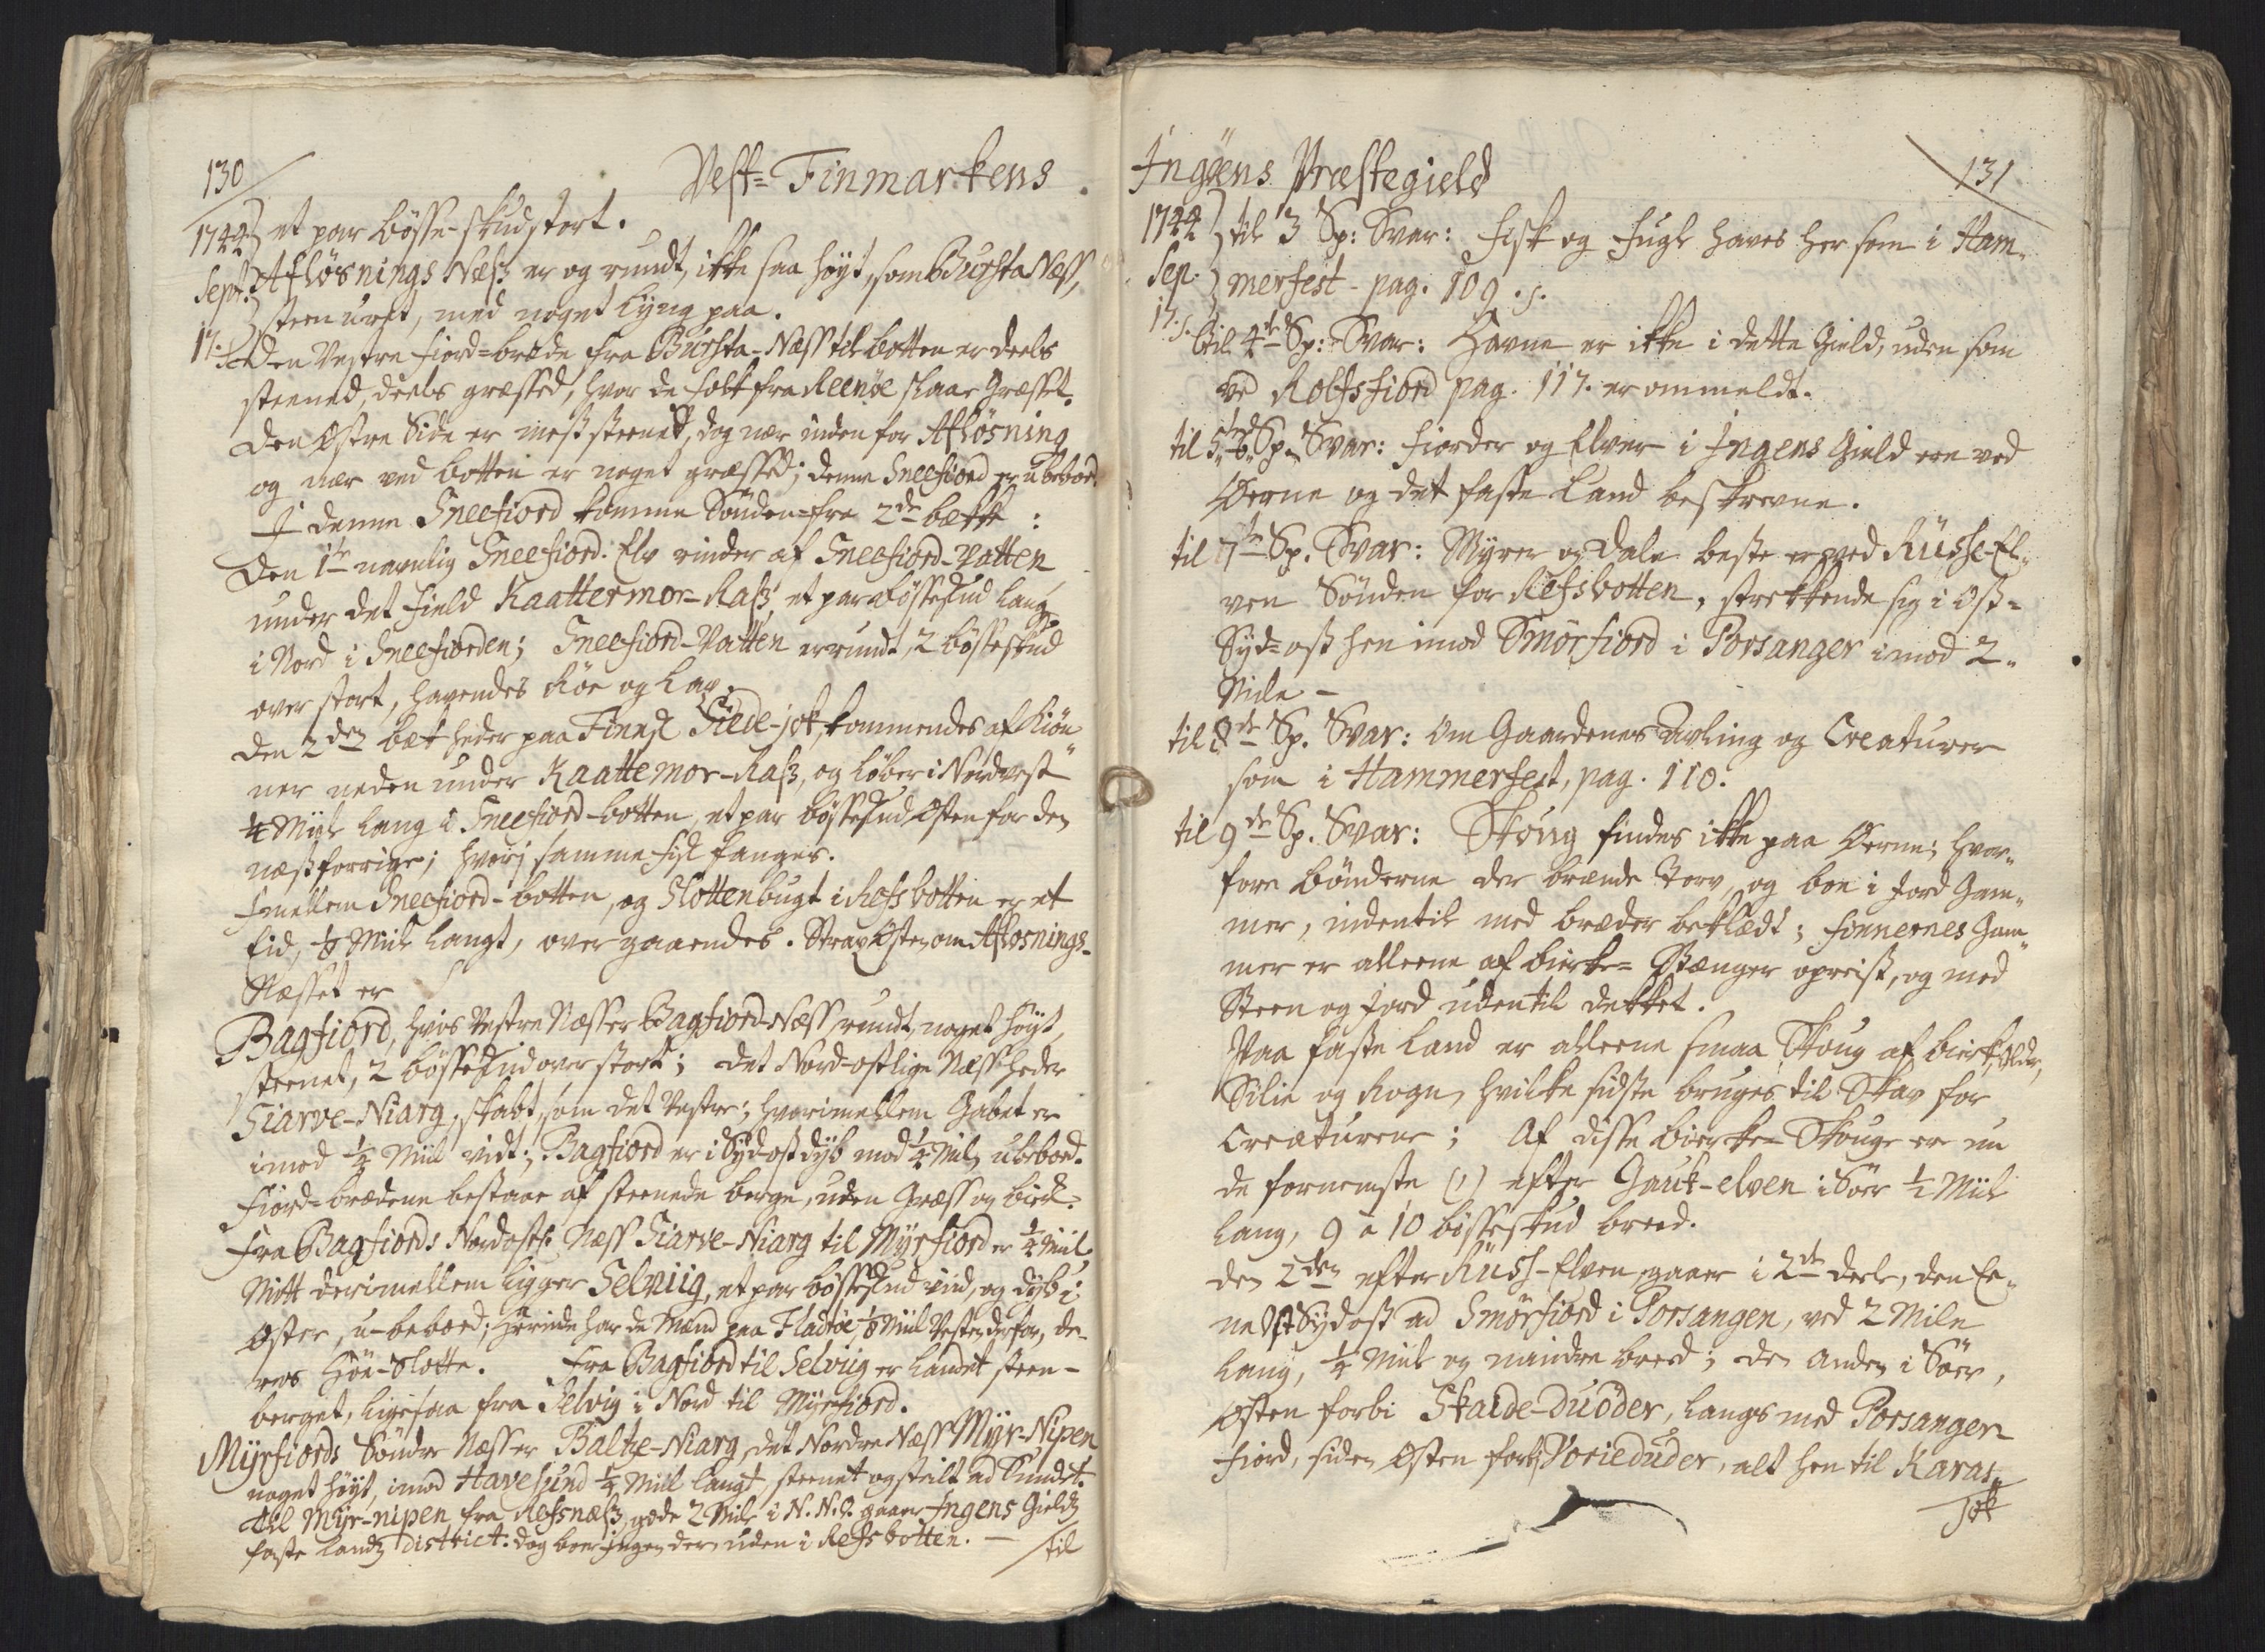 130
Vest-Finmarkens
1744 et par bösse-skud stort.
Sept. Aflösnings Næss er og rundt, ikke saa höyt, som Bursta Næss,
17. steenuret, med noget Lyng paa.
Den Vestre fiord-brede fra Bursta-Næss til botten er deels
steened, deels græssed, hvor de folk fra Reenöe slaar Græsset.
Den Östre Side er mest steenet, dog nær inden for Aflösning
og nær ved botten er noget græssed; denne Sneefiord er ubeboed.
I denne Sneefiord komme Sönden-fra 2de bække:
Den 1te navnlig Sneefiord-Elv rinder af Sneefiord-Vatten
under det field Kaattermor-Rass, et par bösseskud lang
i Nord i Sneefiorden; Sneefiord-Vatten er rundt, 2 bösseskud
over stort, havendes Röe og Lax.
Den 2den bæk heder paa Finnsk Siede-jok, kommendes af Kiön
ner neden under Kaattemor-Rass, og löber i Nordvest
1/4 Miil lang i Sneefiord-botten, et par bösseskud Osten for den
næstforrige; hvori samme fisk fanges.
Imellem Sneefiord-botten, og Slottenbugt i Refsbotten er et
Eid, 1/8 Miil langt, over gaaendes. Strax Osten om Aflösnings-
Næsset er
Bagfiord, hvis Vestre Næss er Bagfiord-Næss, rundt, noget höyt,
steenet, 2 bösseskud over stort; det Nord-ostlige Næss heder
Giarve-Niarg, skabt som det Vestre; hvorimellem Gabet er
imod 1/4 Miil vidt; Bagfiord er i Syd-ost dyb mod 1/4 Miil, ubeboed.
Fiord-brædene bestaar af steenede berge, uden Græss og birk.
Fra Bagfiords Nordostl. Næss Giarve-Niarg til Myrfiord er 1/4 Miil
Mitt derimellem ligger Selviig, et par bösseskud viid, og dyb i
Oster, u-beboed; herinde har de Mænd paa Fladöe 1/8 Miil Vesten derfor, de-
res Höe-Slotte. Fra Bagfiord til Selviig er Landet steen-
berget, ligesaa fra Selvig i Nord til Myrfiord.
Myrfiords Söndre Næss er Baltze-Niarg, det Nordre Næss Myr-Nipen
noget höyt, imod Havesund 1/4 Miil langt, steenet og steilt ad Sundet.
Til Myr-nipen fra Refsnæss, gode 2 Miile i N.N.O. gaaer Ingens Gields
faste Lands District: dog boer ingen der uden i Refsbotten. —
til
Ingöens Præstegield
131
1744 til 3 Sp: Svar: Fisk og Fugle haves her som i Ham-
Sep. merfest - pag. 109.
17. til 4de Sp: Svar: Havne er ikke i dette Gield, uden som
ved Rolfsfiord pag. 117. er ommeldt.
til 5, 6, Sp. Svar: Fiorder og Elver i Ingens Gield ere ved
Öerne og det faste Land beskrevne.
til 7de Sp. Svar: Myrer og Dale beste er ved Russe-El-
ven Sönden for Refsbotten, strekkende sig i Ost-
Syd-ost hen imod Smörfiord i Porsanger imod 2
Mile -
til 8de Sp. Svar: Om Gaardenes Avling og Creaturer
som i Hammerfest, pag. 110.
til 9de Sp. Svar: Skoug findes ikke paa Öerne; hvor-
fore Bönderne der brænde Torv, og boe i Jord Gam-
mer, indentil med bræder beklædt; finnernes Gam-
mer er alleene af birke-Stænger opreist, og med
Steen og jord udentil dekket.
Paa faste Land er alleene smaa Skoug af birk, Older,
Silie og Rogn, hvilke sidste bruges til Skav for
Creaturene; Af disse bierke-Skouge er nu
de fornemste (1) efter Gauk-elven i Söer 1/2 Miil
lang, 9 a 10 bösseskud breed.
den 2den efter Russ-Elven, gaaer i 2de deele, den Ee-
ne Sydost ad Smörfiord i Porsangen, ved 2 Mile
lang, 1/4 Miil og mindre breed; den Anden i Söer,
Osten forbi Skaide-duöder, langs med Porsanger
fiord, siden Osten forbi Vorieduder, alt hen til Karas-
jok